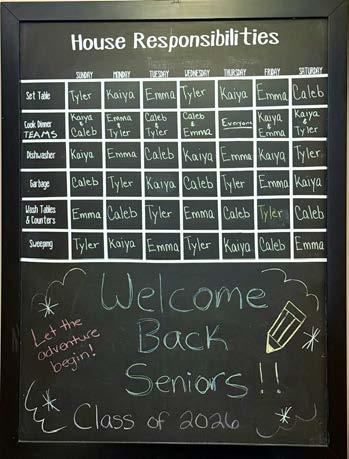 House Responsibilities
SUNDAY MONDAY TUESDAY WEDNESDAY THURSDAY FRIDAY SATURDAY
Set Table Tyler Kaiya Emma Tyler Kaiya Emma Caleb
Cook Dinner TEAMS Kaiya & Caleb Emma & Tyler Caleb & Tyler Caleb & Emma Everyone Kaiya & Emma Kaiya & Tyler
Dishwasher Kaiya Emma Caleb Kaiya Emma Caleb Tyler
Garbage Caleb Tyler Kaiya Caleb Tyler Emma Kaiya
Wash Tables & Counters Emma Caleb Tyler Emma Caleb Tyler Caleb
Sweeping Tyler Kaiya Emma Tyler Kaiya Caleb Emma
Welcome
Back
Seniors!!
Let the
adventure
begin!
Class of 2026